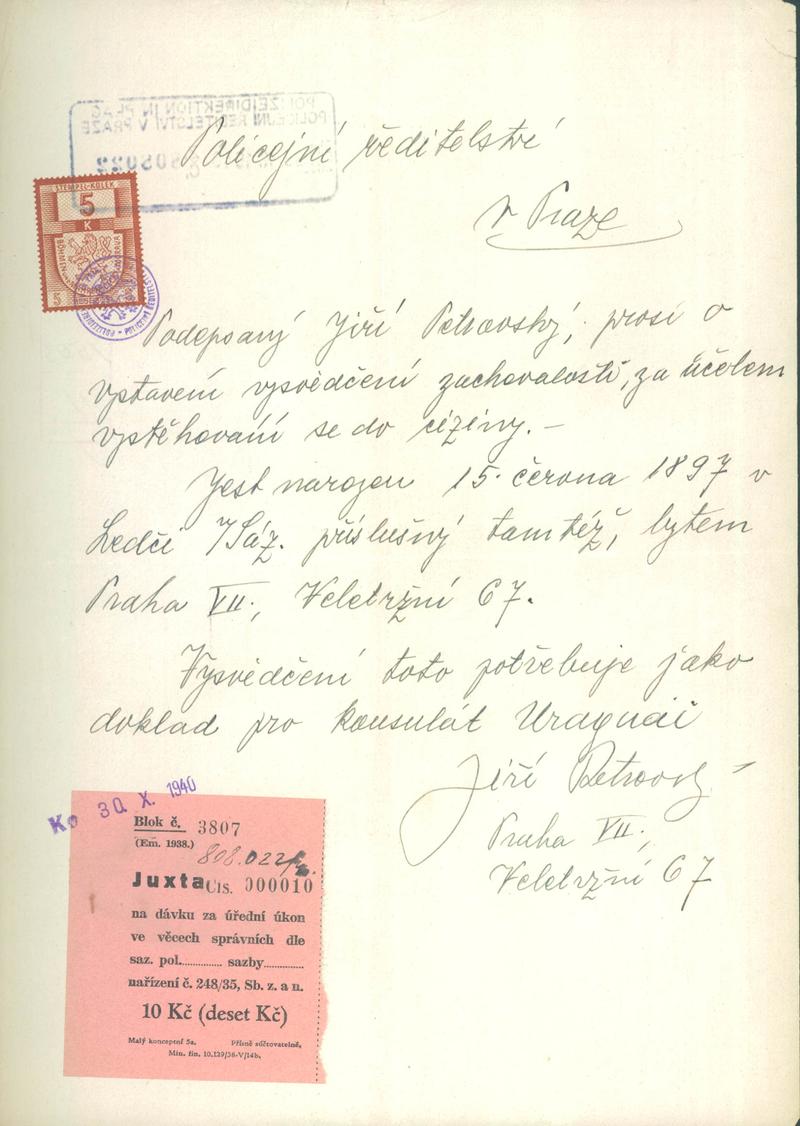 Policejní ředitelství
v Praze
STEMPEL-KOLEK
5
K
5
Podepsaný Jiří Petrovský, prosí o
vystavení vysvědčení zachovalosti, za účelem
vystěhování se do ciziny. –
Jest narozen 15. června 1897 v
Ledči /Sáz. příslušný tamtéž, bytem
Praha VII., Veletržní 67.
Vysvědčení toto potřebuje jako
doklad pro konsulát Uraguaií
Jiří Petrovský
Praha VII.,
Veletržní 67
Ko 30. X. 1940
Blok č. 3807
(Em. 1938.)
808.022/40
Juxta Čís. 000010
na dávku za úřední úkon
ve věcech správních dle
saz. pol............ sazby............
nařízení č. 248/35, Sb. z. a n.
10 Kč (deset Kč)
Malý konceptní 5a. Přísně súčtovatelné.
Min. fin. 10.129/36-V/14b.